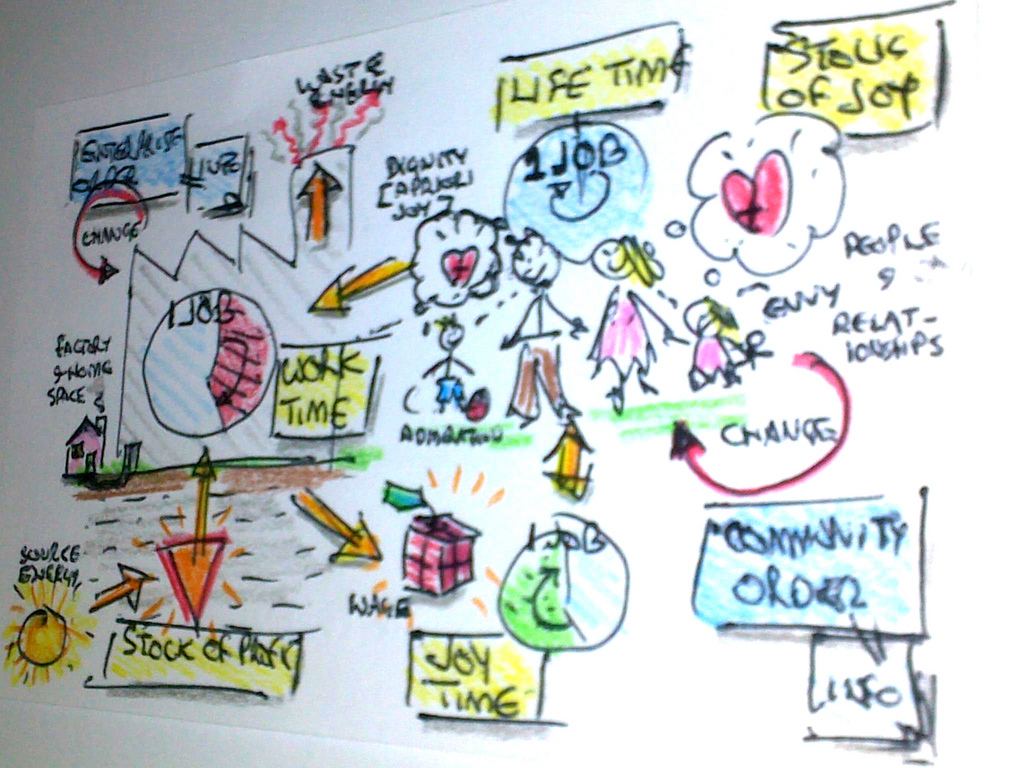 WASTE
ENERGY
LIFE TIME
STOCK
OF JOY
ORDER
INFO
CHANGE
DIGNITY
JOY
1 JOB
1 JOB
PEOPLE
&
RELAT-
IONSHIPS
ENVY
FACTORY
& HOME
SPACE
WORK
TIME
CHANGE
SOURCE
ENERGY
WAGE
1 JOB
COMMUNITY
ORDER
STOCK OF PROFIT
JOY
TIME
INFO